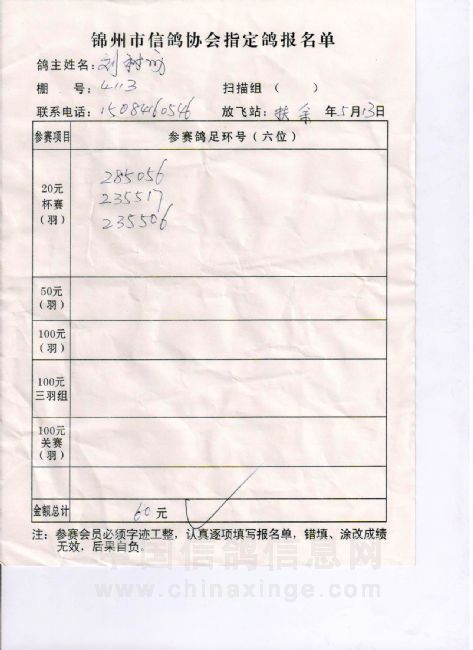 锦州市信鸽协会指定鸽报名单
鸽主姓名：刘树
棚 号：4113
扫描组（ ）
联系电话：1508460546
放飞站：扶余 年5月13日
参赛项目
参赛鸽足环号（六位）
20元
杯赛
（羽）
285056
235517
235506
50元
（羽）
100元
（羽）
100元
三羽组
100元
关赛
（羽）
金额总计
60元
注：参赛会员必须字迹工整，认真逐项填写报名单，错填、涂改成绩
无效，后果自负。
中国信鸽信息网
www.chinaxinge.com